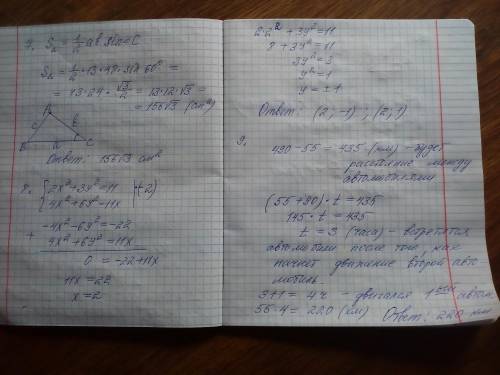 7. S△ = 1/2 ab sin∠C
S△ = 1/2 · 13 · 48 · sin 60° =
= 13 · 24 · √3/2 = 13·12·√3 =
= 156√3 (см²)
B
c
b
A
a
C
Ответ: 156√3 см²
8. {2x²+3y²=11 |·(-2)
{4x²+6y²=11x
+ -4x²-6y²=-22
4x²+6y²=11x
0 = -22+11x
11x=22
x=2
2·2²+3y²=11
8+3y²=11
3y²=3
y²=1
y=±1
Ответ: (2;-1); (2;1)
9.
490-55=435 (км) - будет
расстояние между
автомобилями
(55+90)·t=435
145·t=435
t=3 (часа) - встретятся
автомобили после того, как
начнет движение второй авто-
мобиль.
3+1=4ч - двигался 1 автом.
55·4=220 (км) Ответ: 220 км